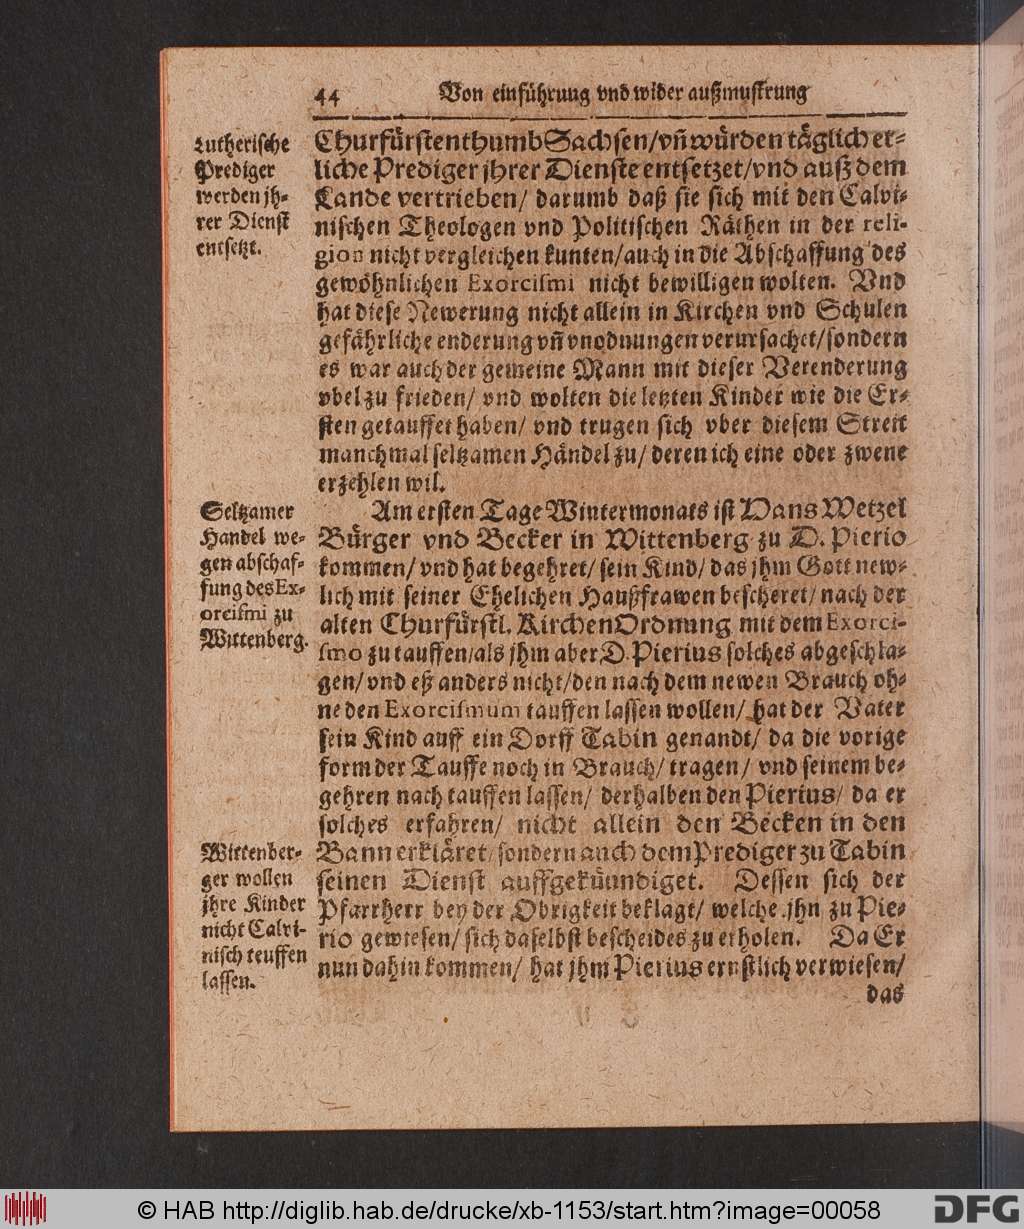 44 Von einführung vnd wider außmustrung
Lutherische
Prediger
werden jh-
rer Dienst
entsetzt.
Churfürstenthumb Sachsen/ vñ würden täglich et-
liche Prediger jhrer Dienste entsetzet/ vnd auß dem
Lande vertrieben/ darumb daß sie sich mit den Calvi-
nischen Theologen vnd Politischen Räthen in der reli-
gion nicht vergleichen kunten/ auch in die Abschaffung des
gewöhnlichen Exorcismi nicht bewilligen wolten. Vnd
hat diese Newerung nicht allein in Kirchen vnd Schulen
gefährliche enderung vñ vnodnungen verursachet/ sondern
es war auch der gemeine Mann mit dieser Verenderung
vbel zu frieden/ vnd wolten die letzten Kinder wie die Er-
sten getauffet haben/ vnd trugen sich vber diesem Streit
manchmal seltzamen Händel zu/ deren ich eine oder zwene
erzehlen wil.
Seltzamer
Handel we-
gen abschaf-
fung des Ex-
orcismi zu
Wittenberg.
Am ersten Tage Wintermonats ist Hans Wetzel
Bürger vnd Becker in Wittenberg zu D. Pierio
kommen/ vnd hat begehret/ sein Kind/ das jhm Gott new-
lich mit seiner Ehelichen Haußfrawen bescheret/ nach der
alten Churfürstl. KirchenOrdnung mit dem Exorci-
smo zu tauffen/ als jhm aber D. Pierius solches abgeschla-
gen/ vnd eß anders nicht/ den nach dem newen Brauch oh-
ne den Exorcismum tauffen lassen wollen/ hat der Vater
sein Kind auff ein Dorff Tabin genandt/ da die vorige
form der Tauffe noch in Brauch/ tragen/ vnd seinem be-
gehren nach tauffen lassen/ derhalben den Pierius/ da er
solches erfahren/ nicht allein den Becken in den
Bann erkläret/ sondern auch dem Prediger zu Tabin
seinen Dienst auffgekuundiget. Dessen sich der
Pfarrherr bey der Obrigkeit beklagt/ welche jhn zu Pie-
rio gewiesen/ sich daselbst bescheides zu erholen. Da Er
nun dahin kommen/ hat jhm Pierius ernstlich verwiesen/
Wittenber-
ger wollen
jhre Kinder
nicht Calvi-
nisch teuffen
lassen.
das
© HAB http://diglib.hab.de/drucke/xb-1153/start.htm?image=00058
DFG